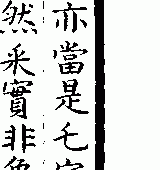 亦當是乇
然采實非